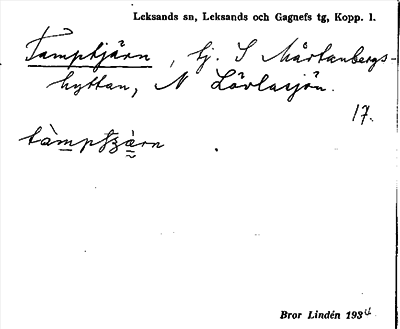 Leksands sn, Leksands och Gagnefs tg, Kopp. l.
Tamptjärn, tj. S Mårtanbergs-
hyttan, N Lövlasjön.
17.
Bror Lindén 1934